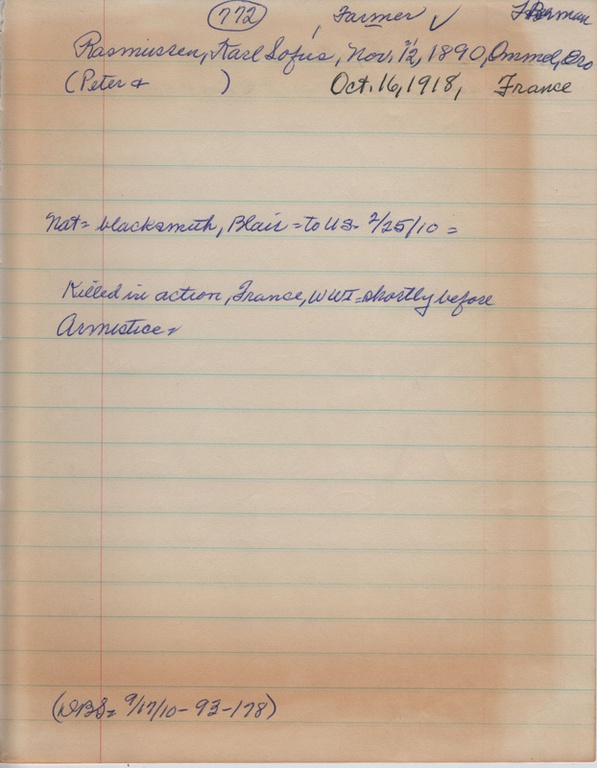 772 , Farmer ✓
Rasmussen, Karl Sofus, Nov. 12, 1890, Ommel, Ero
(Peter & ) Oct. 16, 1918, France
Nat= blacksmith, Blair = to US- 2/25/10 =
Killed in action, France, WWI= shortly before
Armistice=
(DBS= 9/17/10-93-178)